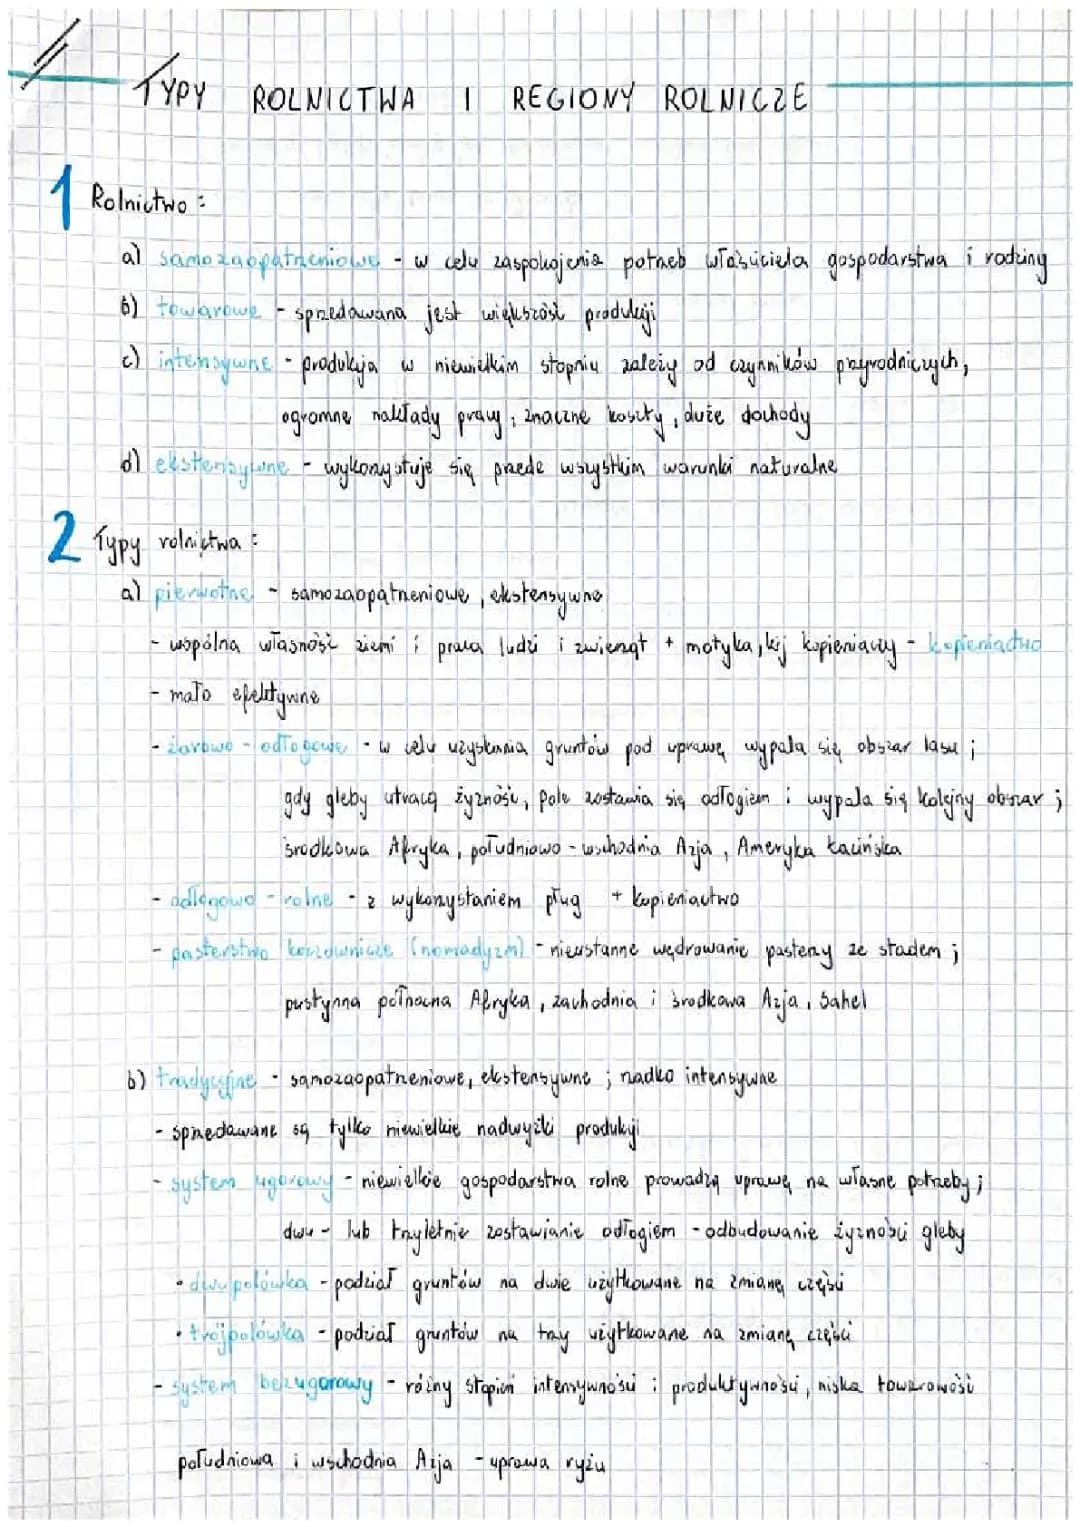 TYPY ROLNICTWA I REGIONY ROLNICZE
1 Rolnictwo:
a) samozaopatrzeniowe - w celu zaspokojenia potrzeb właściciela gospodarstwa i rodziny
b) towarowe - sprzedawana jest większość produkcji
c) intensywne - produkcja w niewielkim stopniu zależy od czynników przyrodniczych,
ogromne nakłady pracy, znaczne koszty, duże dochody
d) ekstensywne - wykorzystuje się przede wszystkim warunki naturalne
2 Typy rolnictwa:
a) pierwotne - samozaopatrzeniowe, ekstensywne
- wspólna własność ziemi i praca ludzi i zwierząt + motyka, kij kopieniaczy - kopieniactwo
- mało efektywne
- żarowo - odłogowe - w celu uzyskania gruntów pod uprawę wypala się obszar lasu;
gdy gleby utracą żyzność, pole zostawia się odłogiem i wypala się kolejny obszar;
środkowa Afryka, południowo - wschodnia Azja, Ameryka Łacińska
- odłogowo - rolne - z wykorzystaniem pług + kopieniactwo
- pasterstwo koczownicze (nomadyzm) - nieustanne wędrowanie pasterzy ze stadem;
pustynna północna Afryka, zachodnia i środkowa Azja, Sahel
b) tradycyjne - samozaopatrzeniowe, ekstensywne; rzadko intensywne
- sprzedawane są tylko niewielkie nadwyżki produkcji
- system ugorowy - niewielkie gospodarstwa rolne prowadzą uprawę na własne potrzeby;
dwu - lub trzyletnie zostawianie odłogiem - odbudowanie żyzności gleby
• dwupolówka - podział gruntów na dwie użytkowane na zmianę części
• trójpolówka - podział gruntów na trzy użytkowane na zmianę części
- system bezugorowy - różny stopień intensywności i produktywności, niska towarowość
południowa i wschodnia Azja - uprawa ryżu